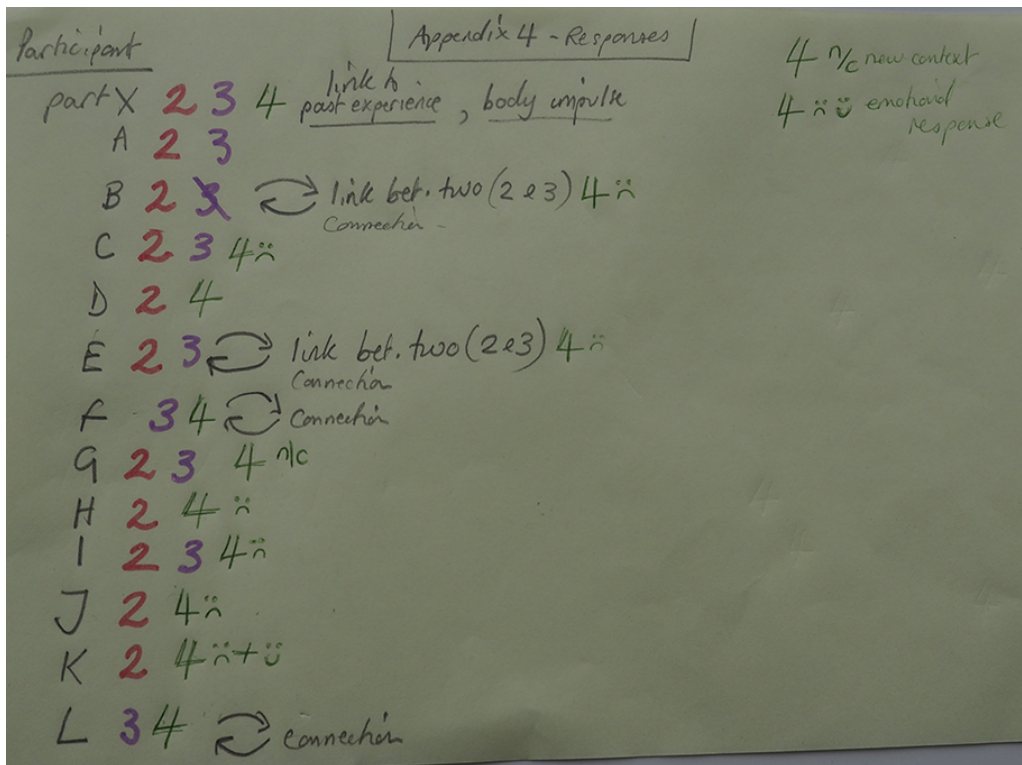 Participant
Appendix 4 - Responses
4 n/c new context
4 ☹ ☺ emotional response
part X 2 3 4 link to past experience, body impulse
A 2 3
B 2 3 link bet. two (2 e 3) 4 ☹
Connection -
C 2 3 4 ☹
D 2 4
E 2 3 link bet. two (2 e 3) 4 ☹
Connection
F 3 4 Connection
G 2 3 4 n/c
H 2 4 ☹
I 2 3 4 ☹
J 2 4 ☹
K 2 4 ☹ + ☺
L 3 4 connection